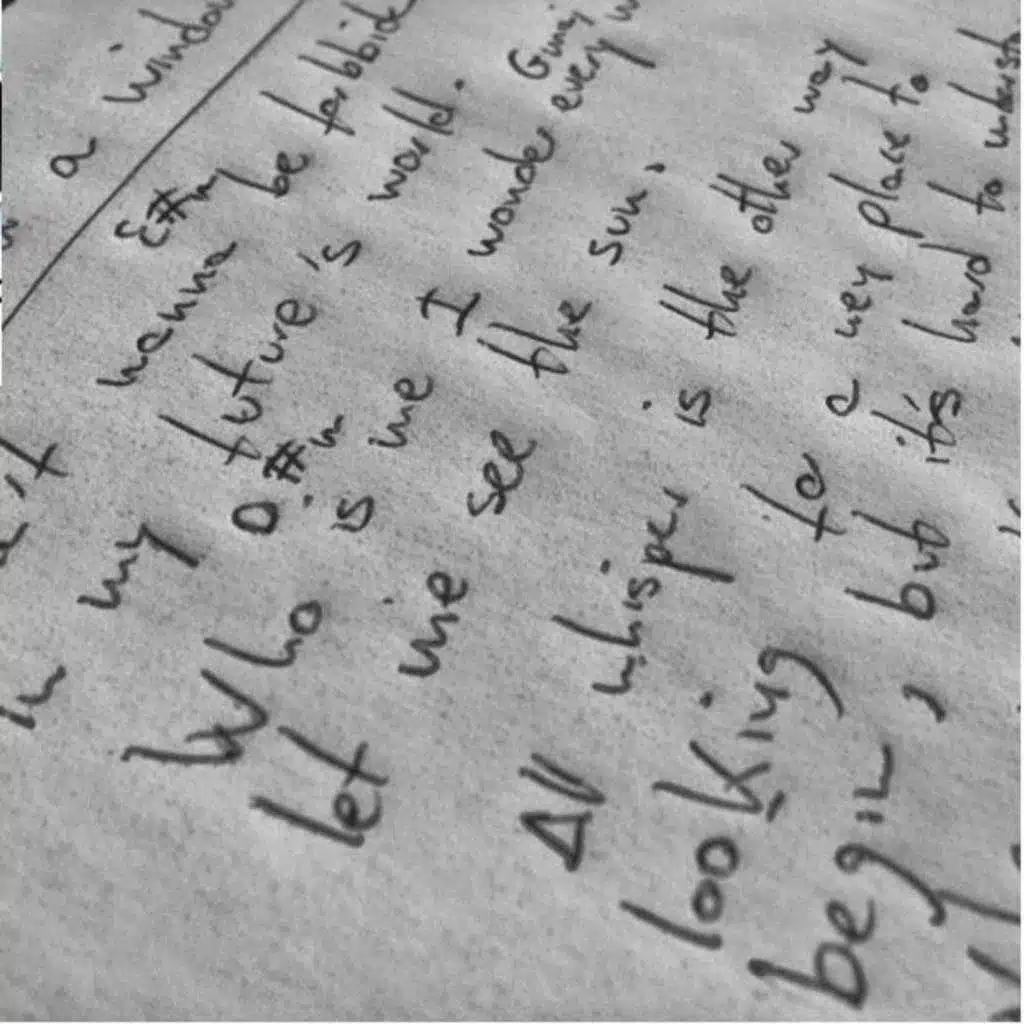 a window
E#m
wanna be
in my future's world.
D#m
Who is me I wonder every
let me see the sun,
All whisper is the other way
looking for a new place to
begin, but it's hard to